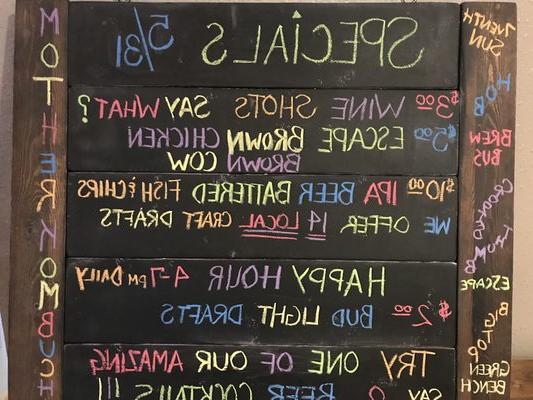 SPECIALS 5/31
$3.00 WINE SHOTS SAY WHAT?
$5.00 ESCAPE BROWN CHICKEN
BROWN COW
$10.00 IPA BEER BATTERED FISH & CHIPS
WE OFFER 14 LOCAL CRAFT DRAFTS
HAPPY HOUR 4-7PM DAILY
$2.00 BUD LIGHT DRAFTS
TRY ONE OF OUR AMAZING
BEER COCKTAILS!!!
SAY
7VENTH
SUN
HOB
BREW
BUS
CROOKED
THUMB
ESCAPE
BIG TOP
GREEN
BENCH
MOTHER KOMBUCH